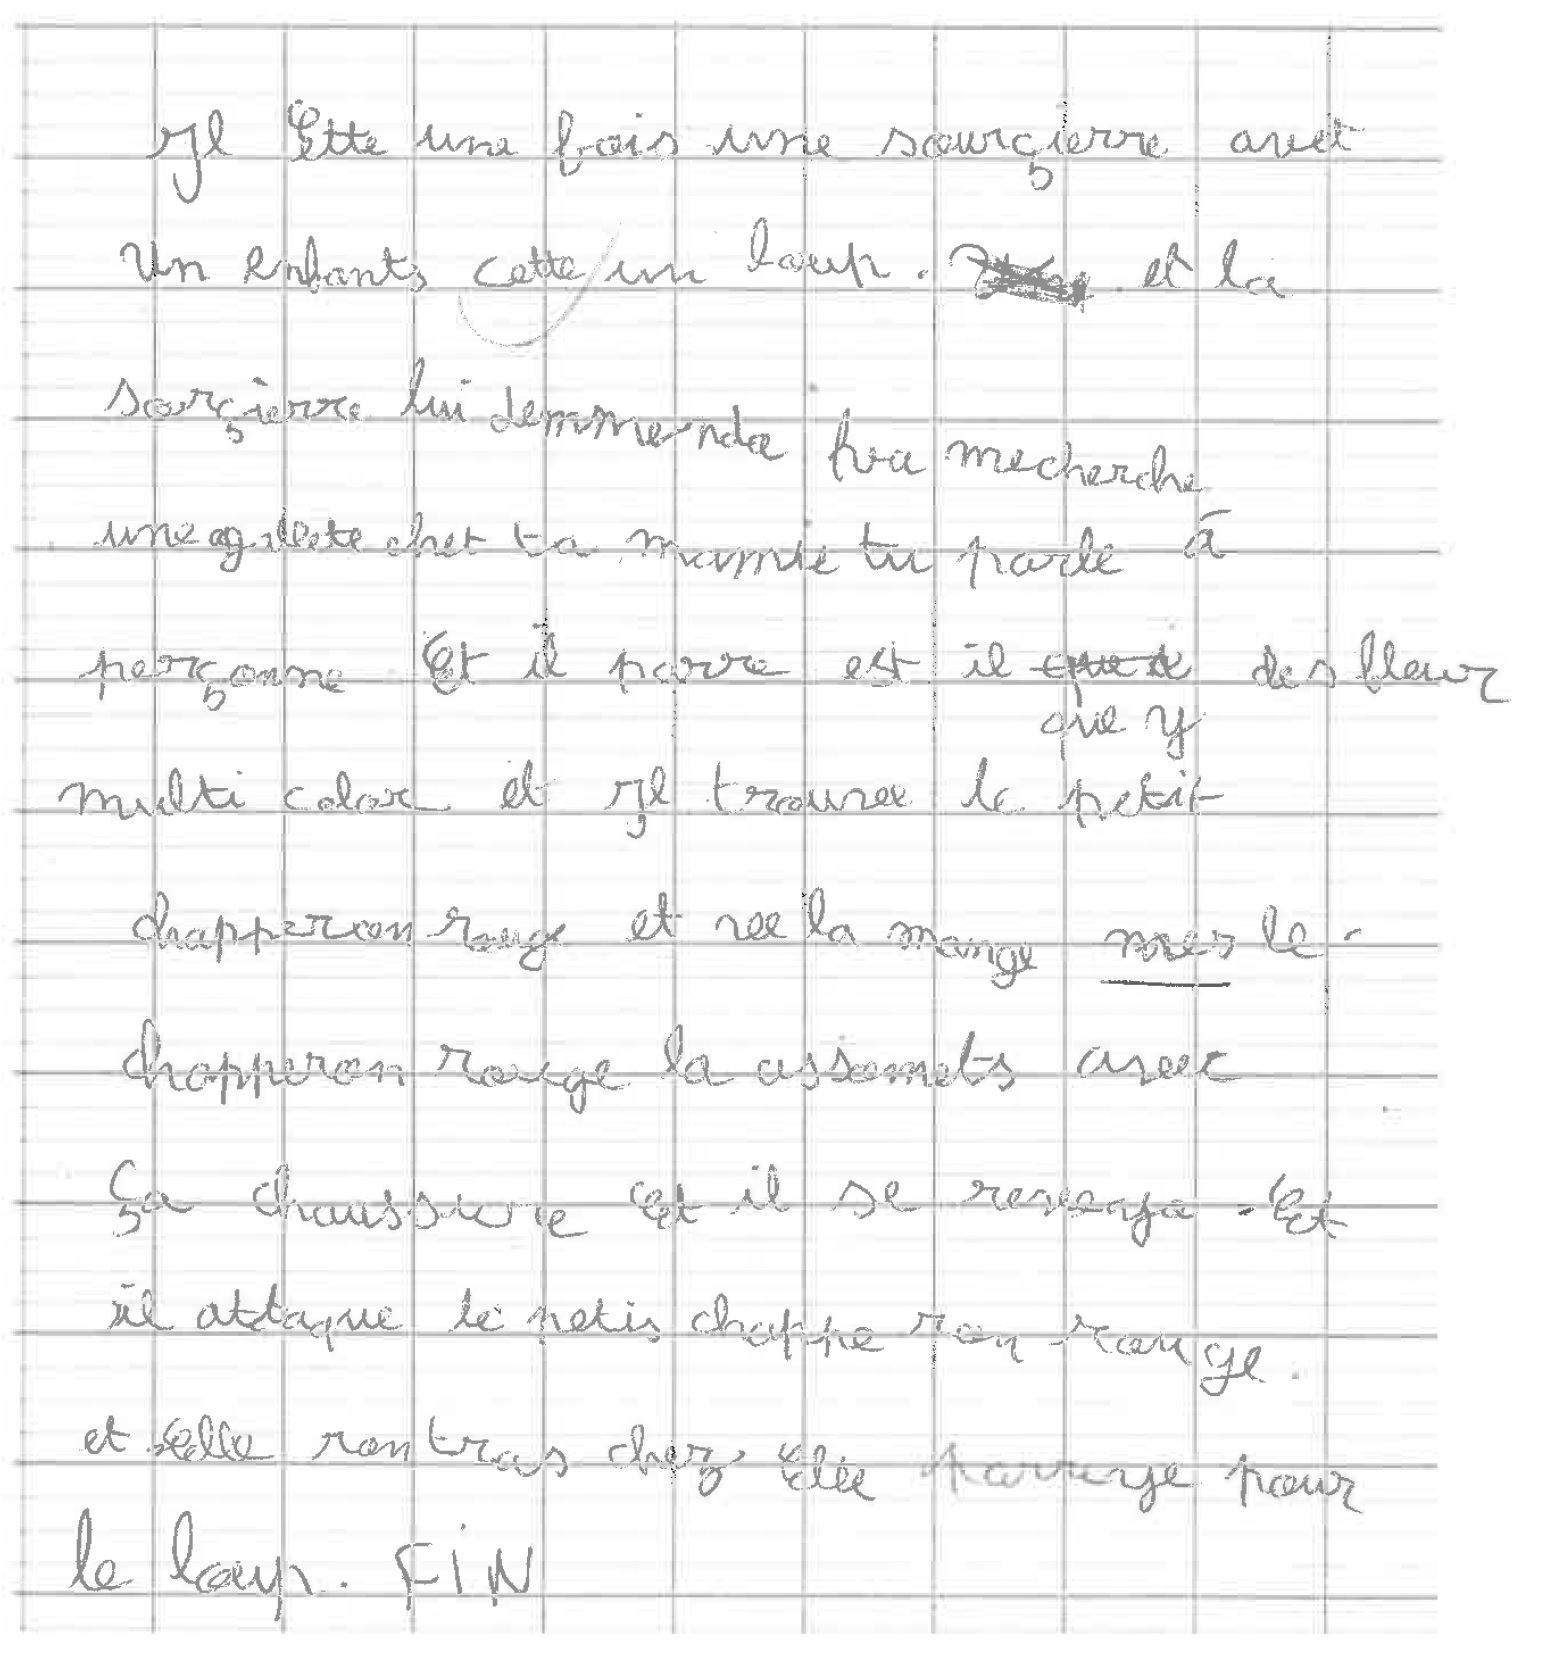 Il Ette une fois une sourçierre avet
Un enfants cette un loup. et la
sorçierre lui demmenda va mecherche
une galette chet ta mamie tu parle à
perçonne. Et il parre est il des fleur
que y
multi color et il trouvee le petit
chapperon rouge et ee la mange mes le
chapperon rouge la assomets avec
Ça chaussure et il se
il attaque le petis chapperon rouge.
et elle rontras chez Elle pour
le loup. FIN